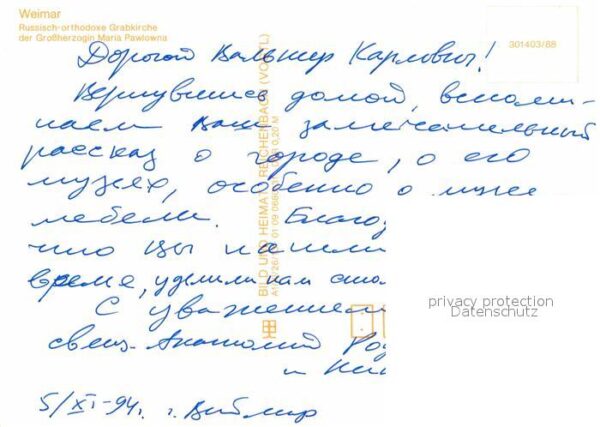 Weimar
Russisch-orthodoxe Grabkirche
der Großherzogin Maria Pawlowna
301403/88
Дорогой Вальтер Карлович!
Вернувшись домой, вспоми-
наем Ваш замечательный
рассказ о городе, о его
музеях, особенно о музее
мебели. Благо
что Вы нашли
время, уделили нам
С уважением
Анатолий
и
5/XI-94г. г. Веймар
BILD UND HEIMAT REICHENBACH (VOGTL)
privacy protection
Datenschutz